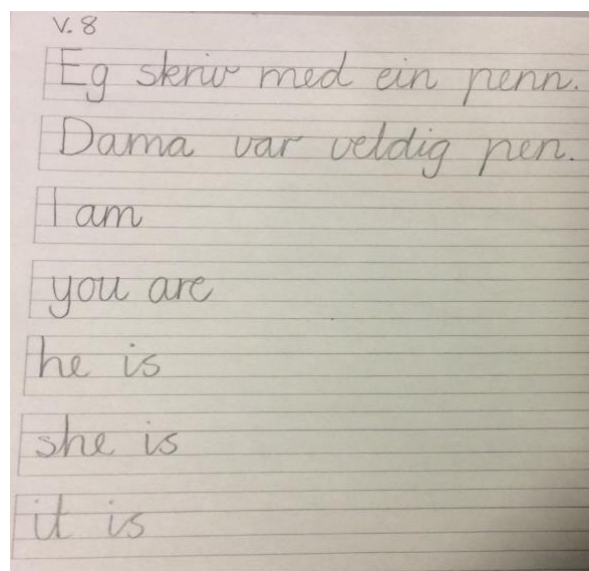 V. 8
Eg skriv med ein penn.
Dama var veldig pen.
I am
you are
he is
she is
it is